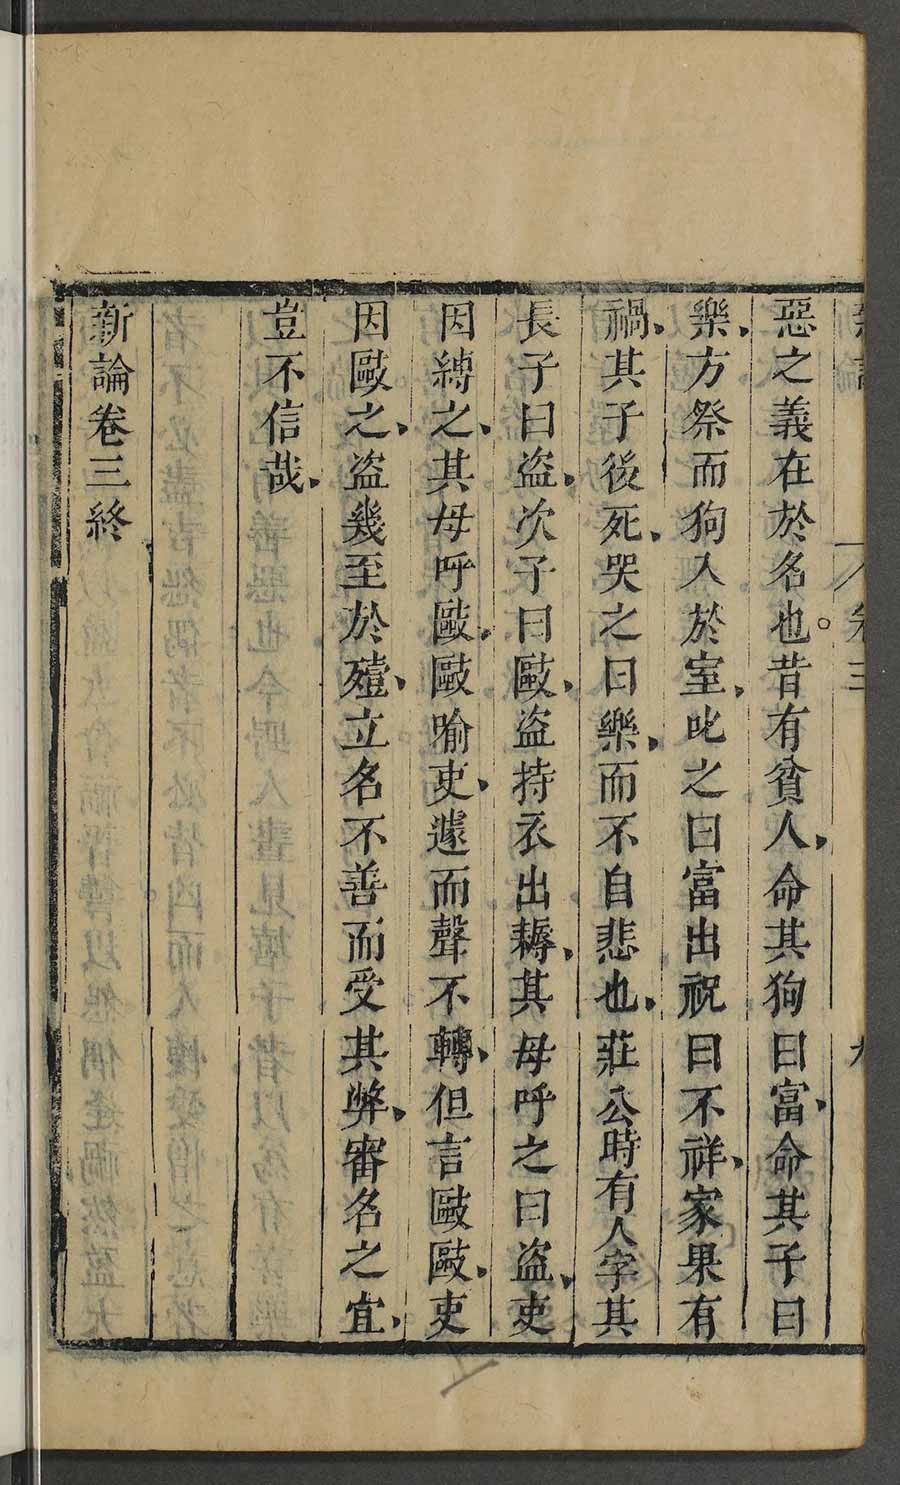 惡之義在於名也。昔有貧人、命其狗曰富、命其子曰
樂、方祭而狗入於室、叱之曰富出祝曰不祥、家果有
禍、其子後死、哭之曰樂、而不自悲也、莊公時有人字其
長子曰盗、次子曰毆、盗持衣出耨、其母呼之曰盗、吏
因縛之、其母呼毆、毆喻吏、遽而聲不轉、但言毆毆、吏
因毆之、盗幾至於殪、立名不善而受其弊、審名之宜、
豈不信哉、
新論卷三終